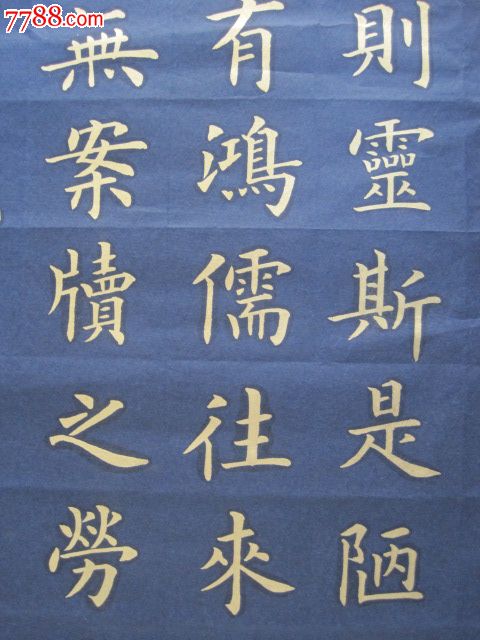 7788.com
則靈斯是陋
有鴻儒往來
無案牘之勞